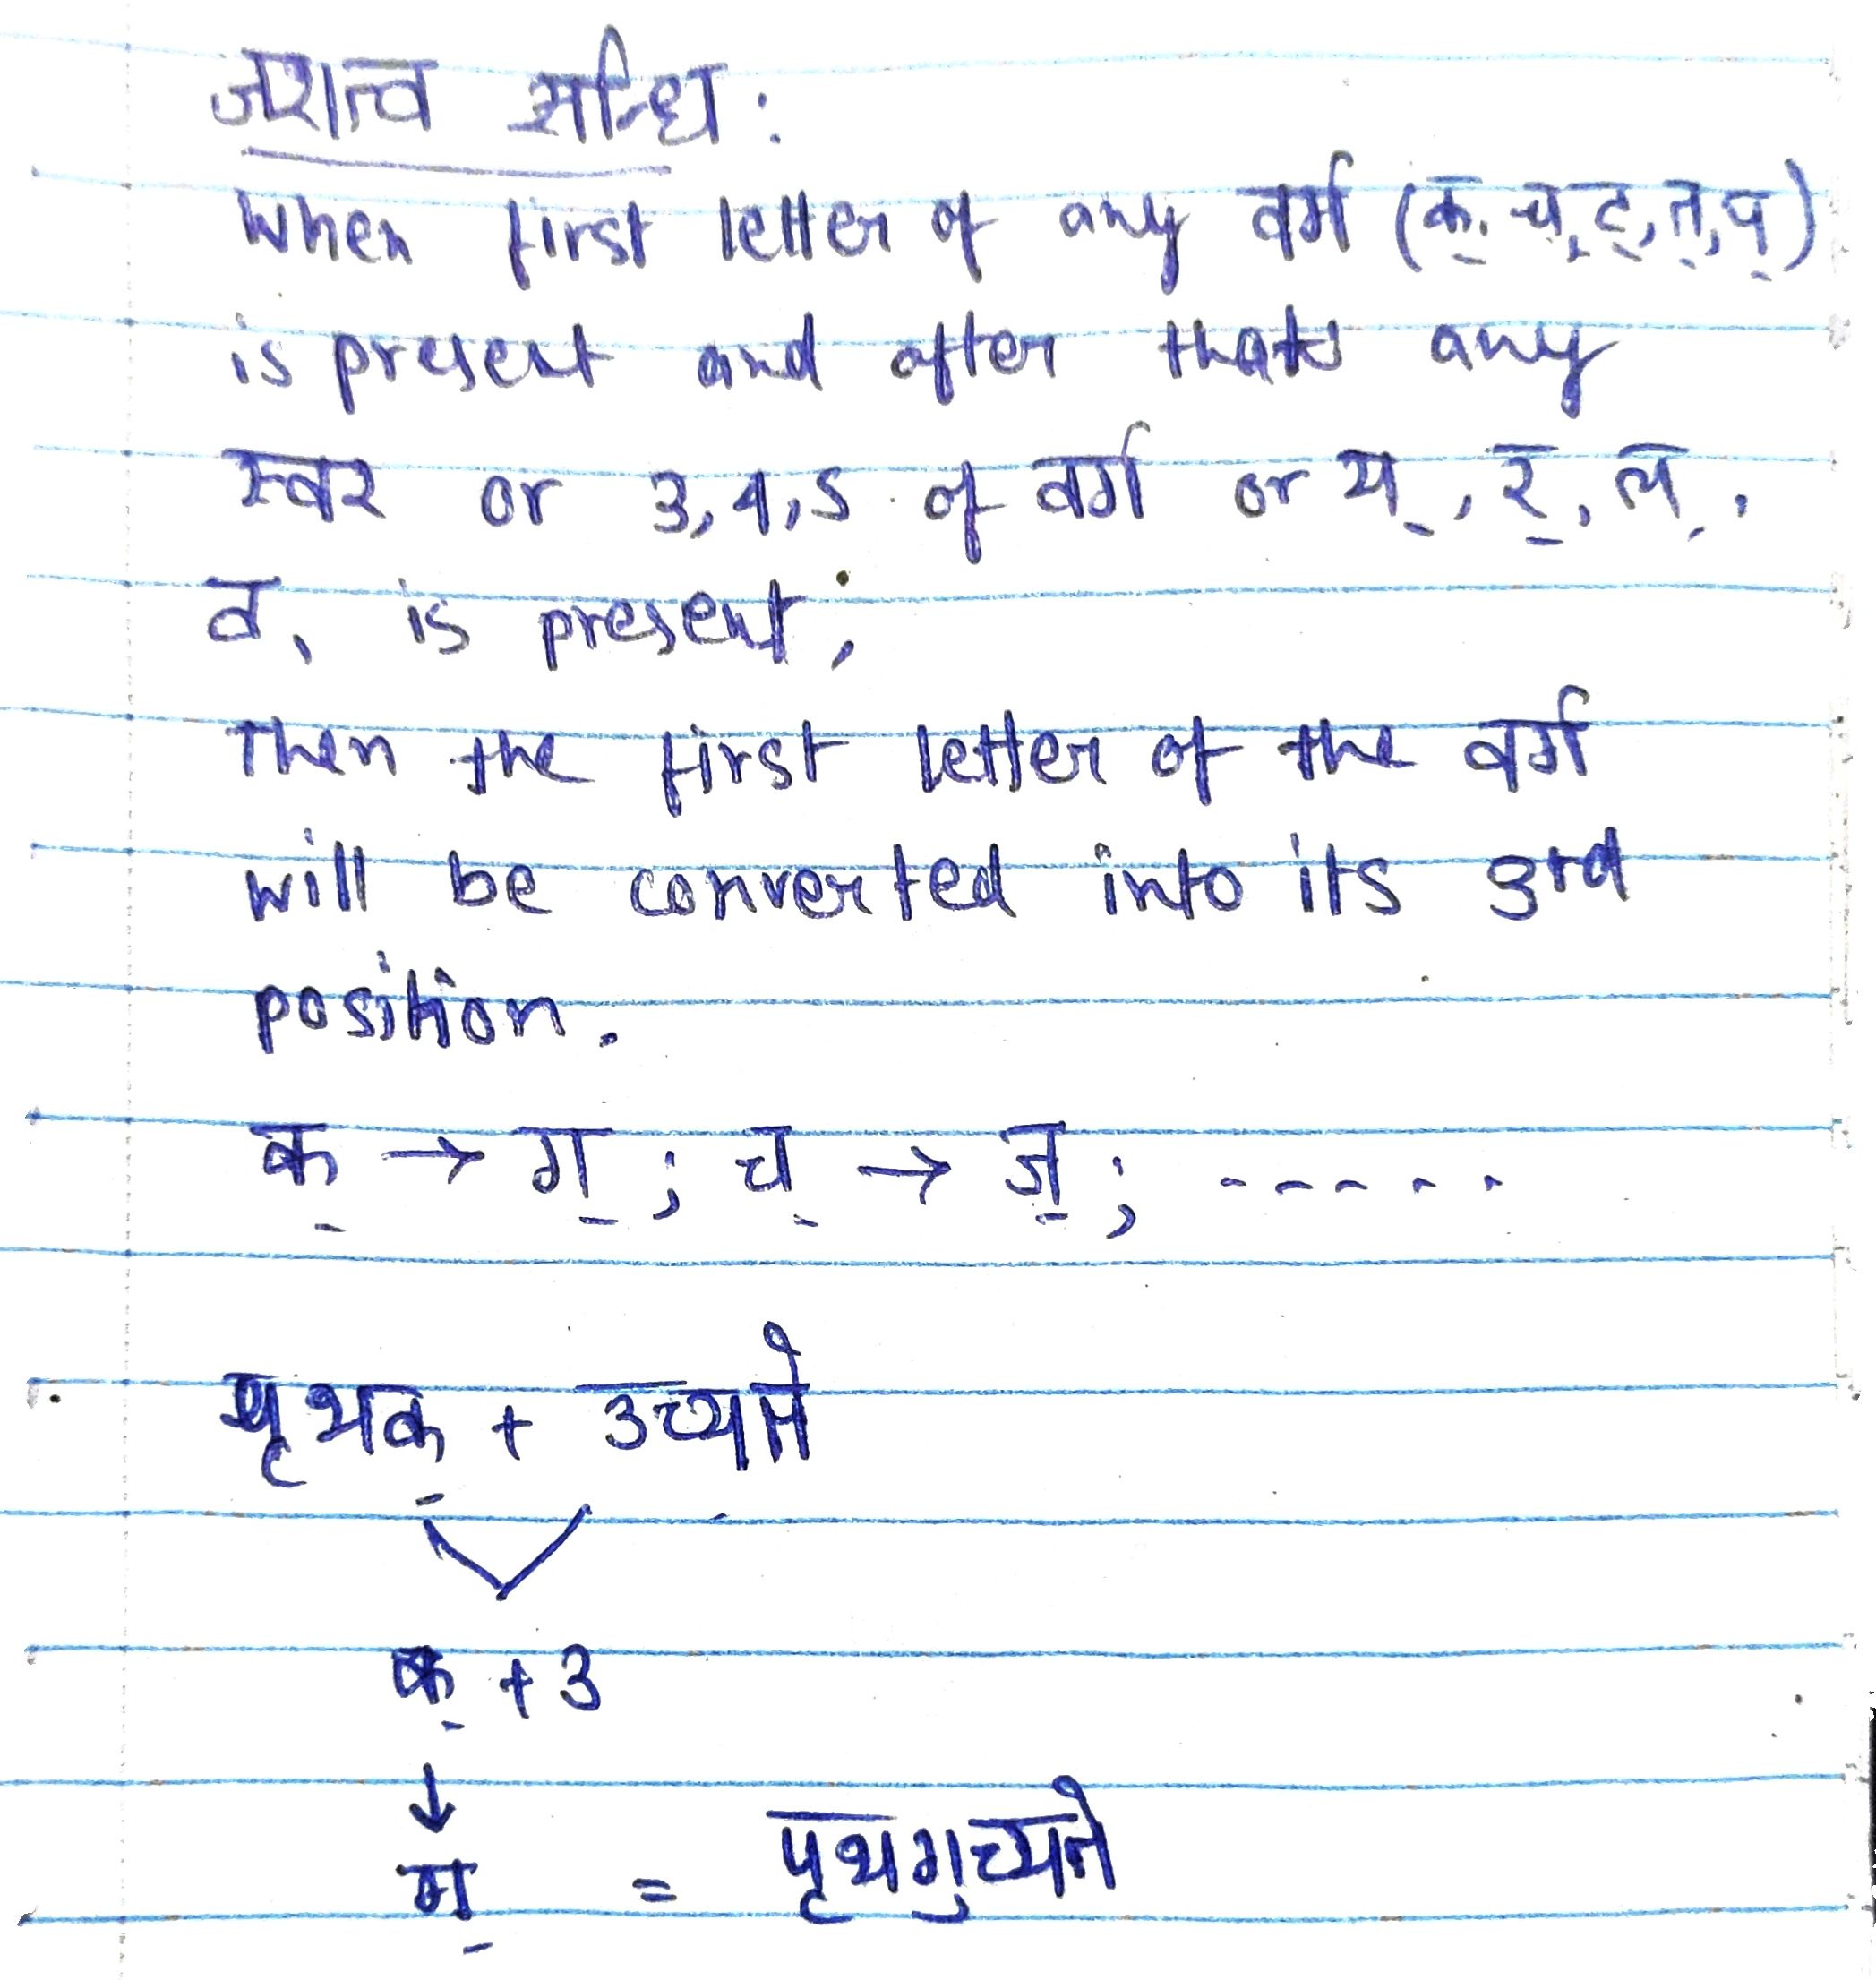 जशत्व सन्धि :
When first letter of any वर्ग (क्, च्, ट्, त्, प्)
is present and after that any
स्वर or 3,4,5 of वर्ग or य्, र्, ल्,
व्, is present,
Then the first letter of the वर्ग
will be converted into its 3rd
position.
क् → ग् ; च् → ज् ; ------
पृथक् + उच्यते
क् + उ
↓
ग् = पृथगुच्यते